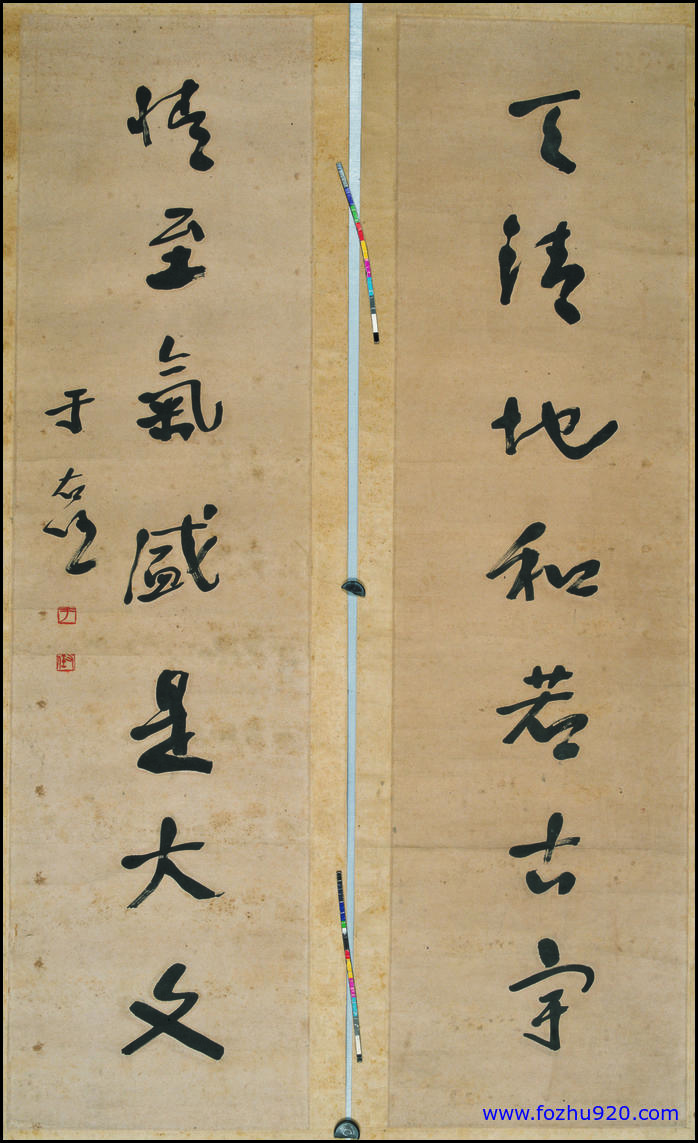 天清地和若古宇
情至氣盛是大文
于右任
www.fozhu920.com